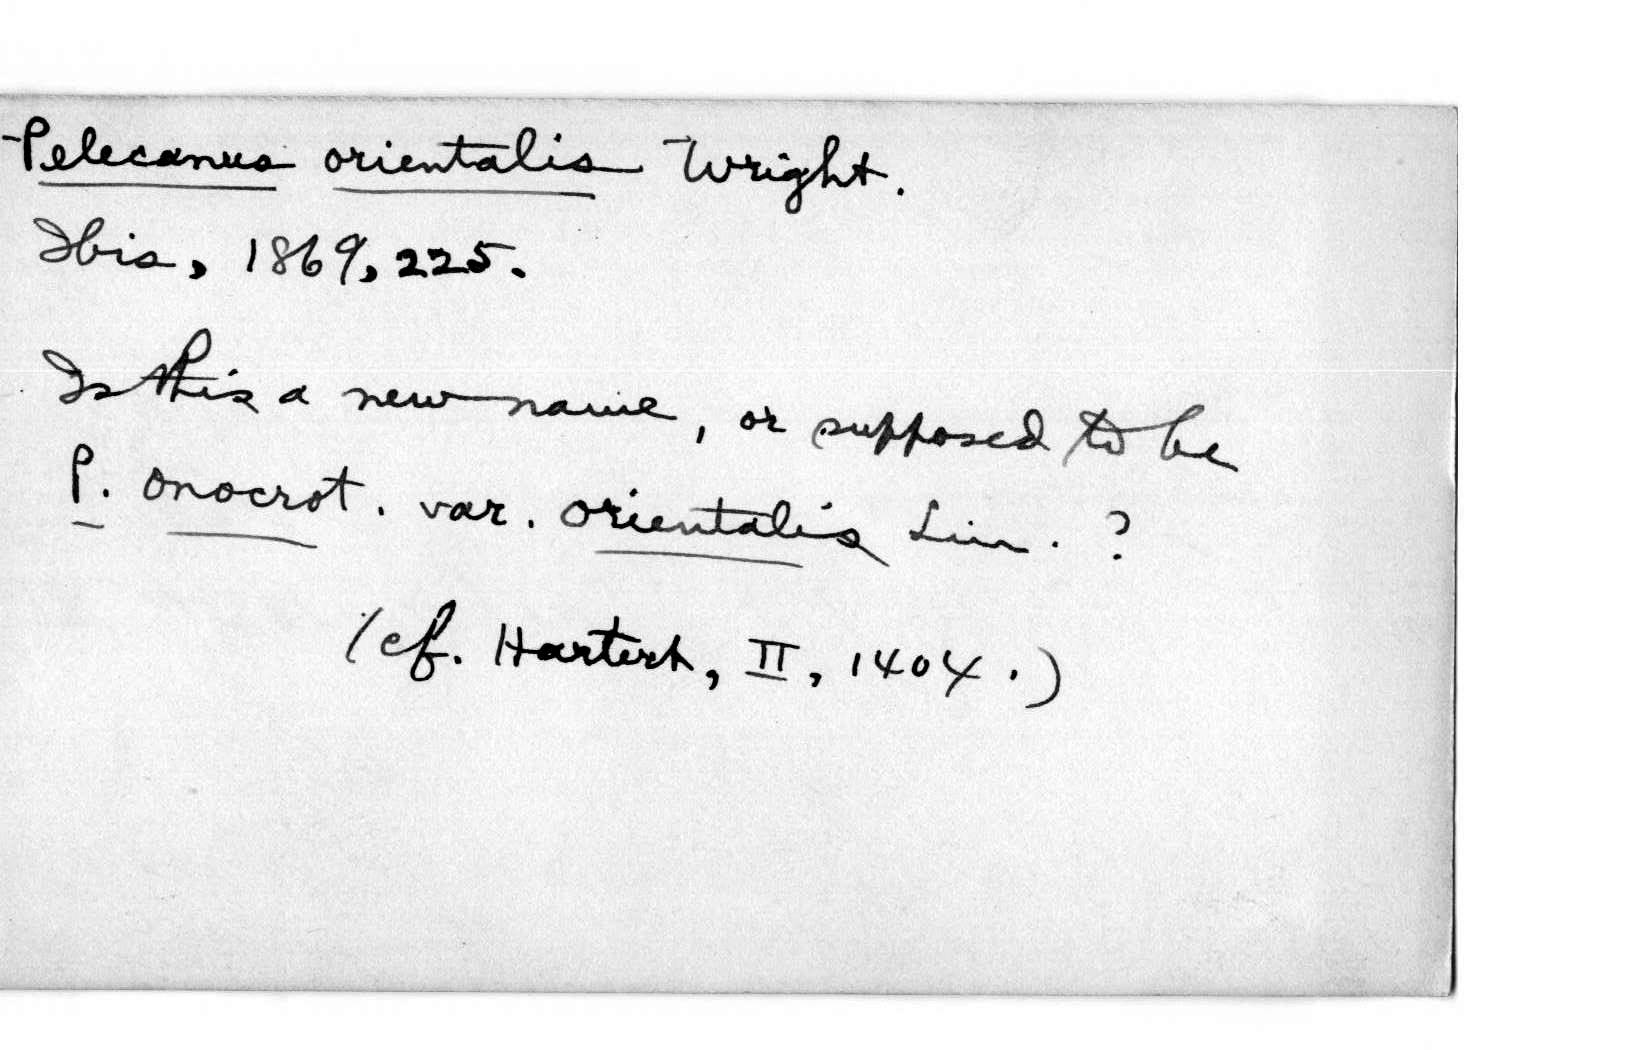 Pelecanus orientalis Wright.
Ibis, 1869, 225.
Is this a new name, or supposed to be
P. onocrot. var. orientalis Lin. ?
(cf. Hartert, II, 1404.)